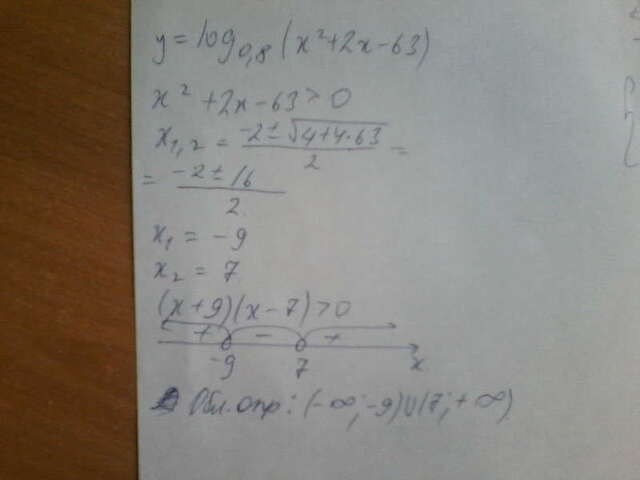 y = log₀,₈ (x² + 2x - 63)
x² + 2x - 63 > 0
x₁,₂ = (-2 ± √(4 + 4·63)) / 2 =
= (-2 ± 16) / 2
x₁ = -9
x₂ = 7
(x + 9)(x - 7) > 0
+ - +
-9 7 x
Обл. опр: (-∞; -9)∪(7; +∞)